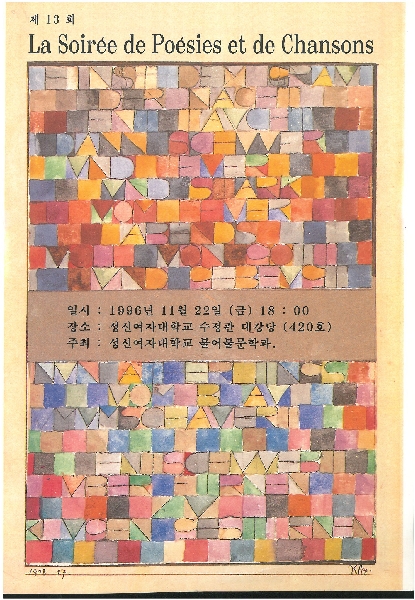 제 13 회
La Soirée de Poésies et de Chansons
일시 : 1996년 11월 22일 (금) 18 : 00
장소 : 성신여자대학교 수정관 대강당 (420호)
주최 : 성신여자대학교 불어불문학과.